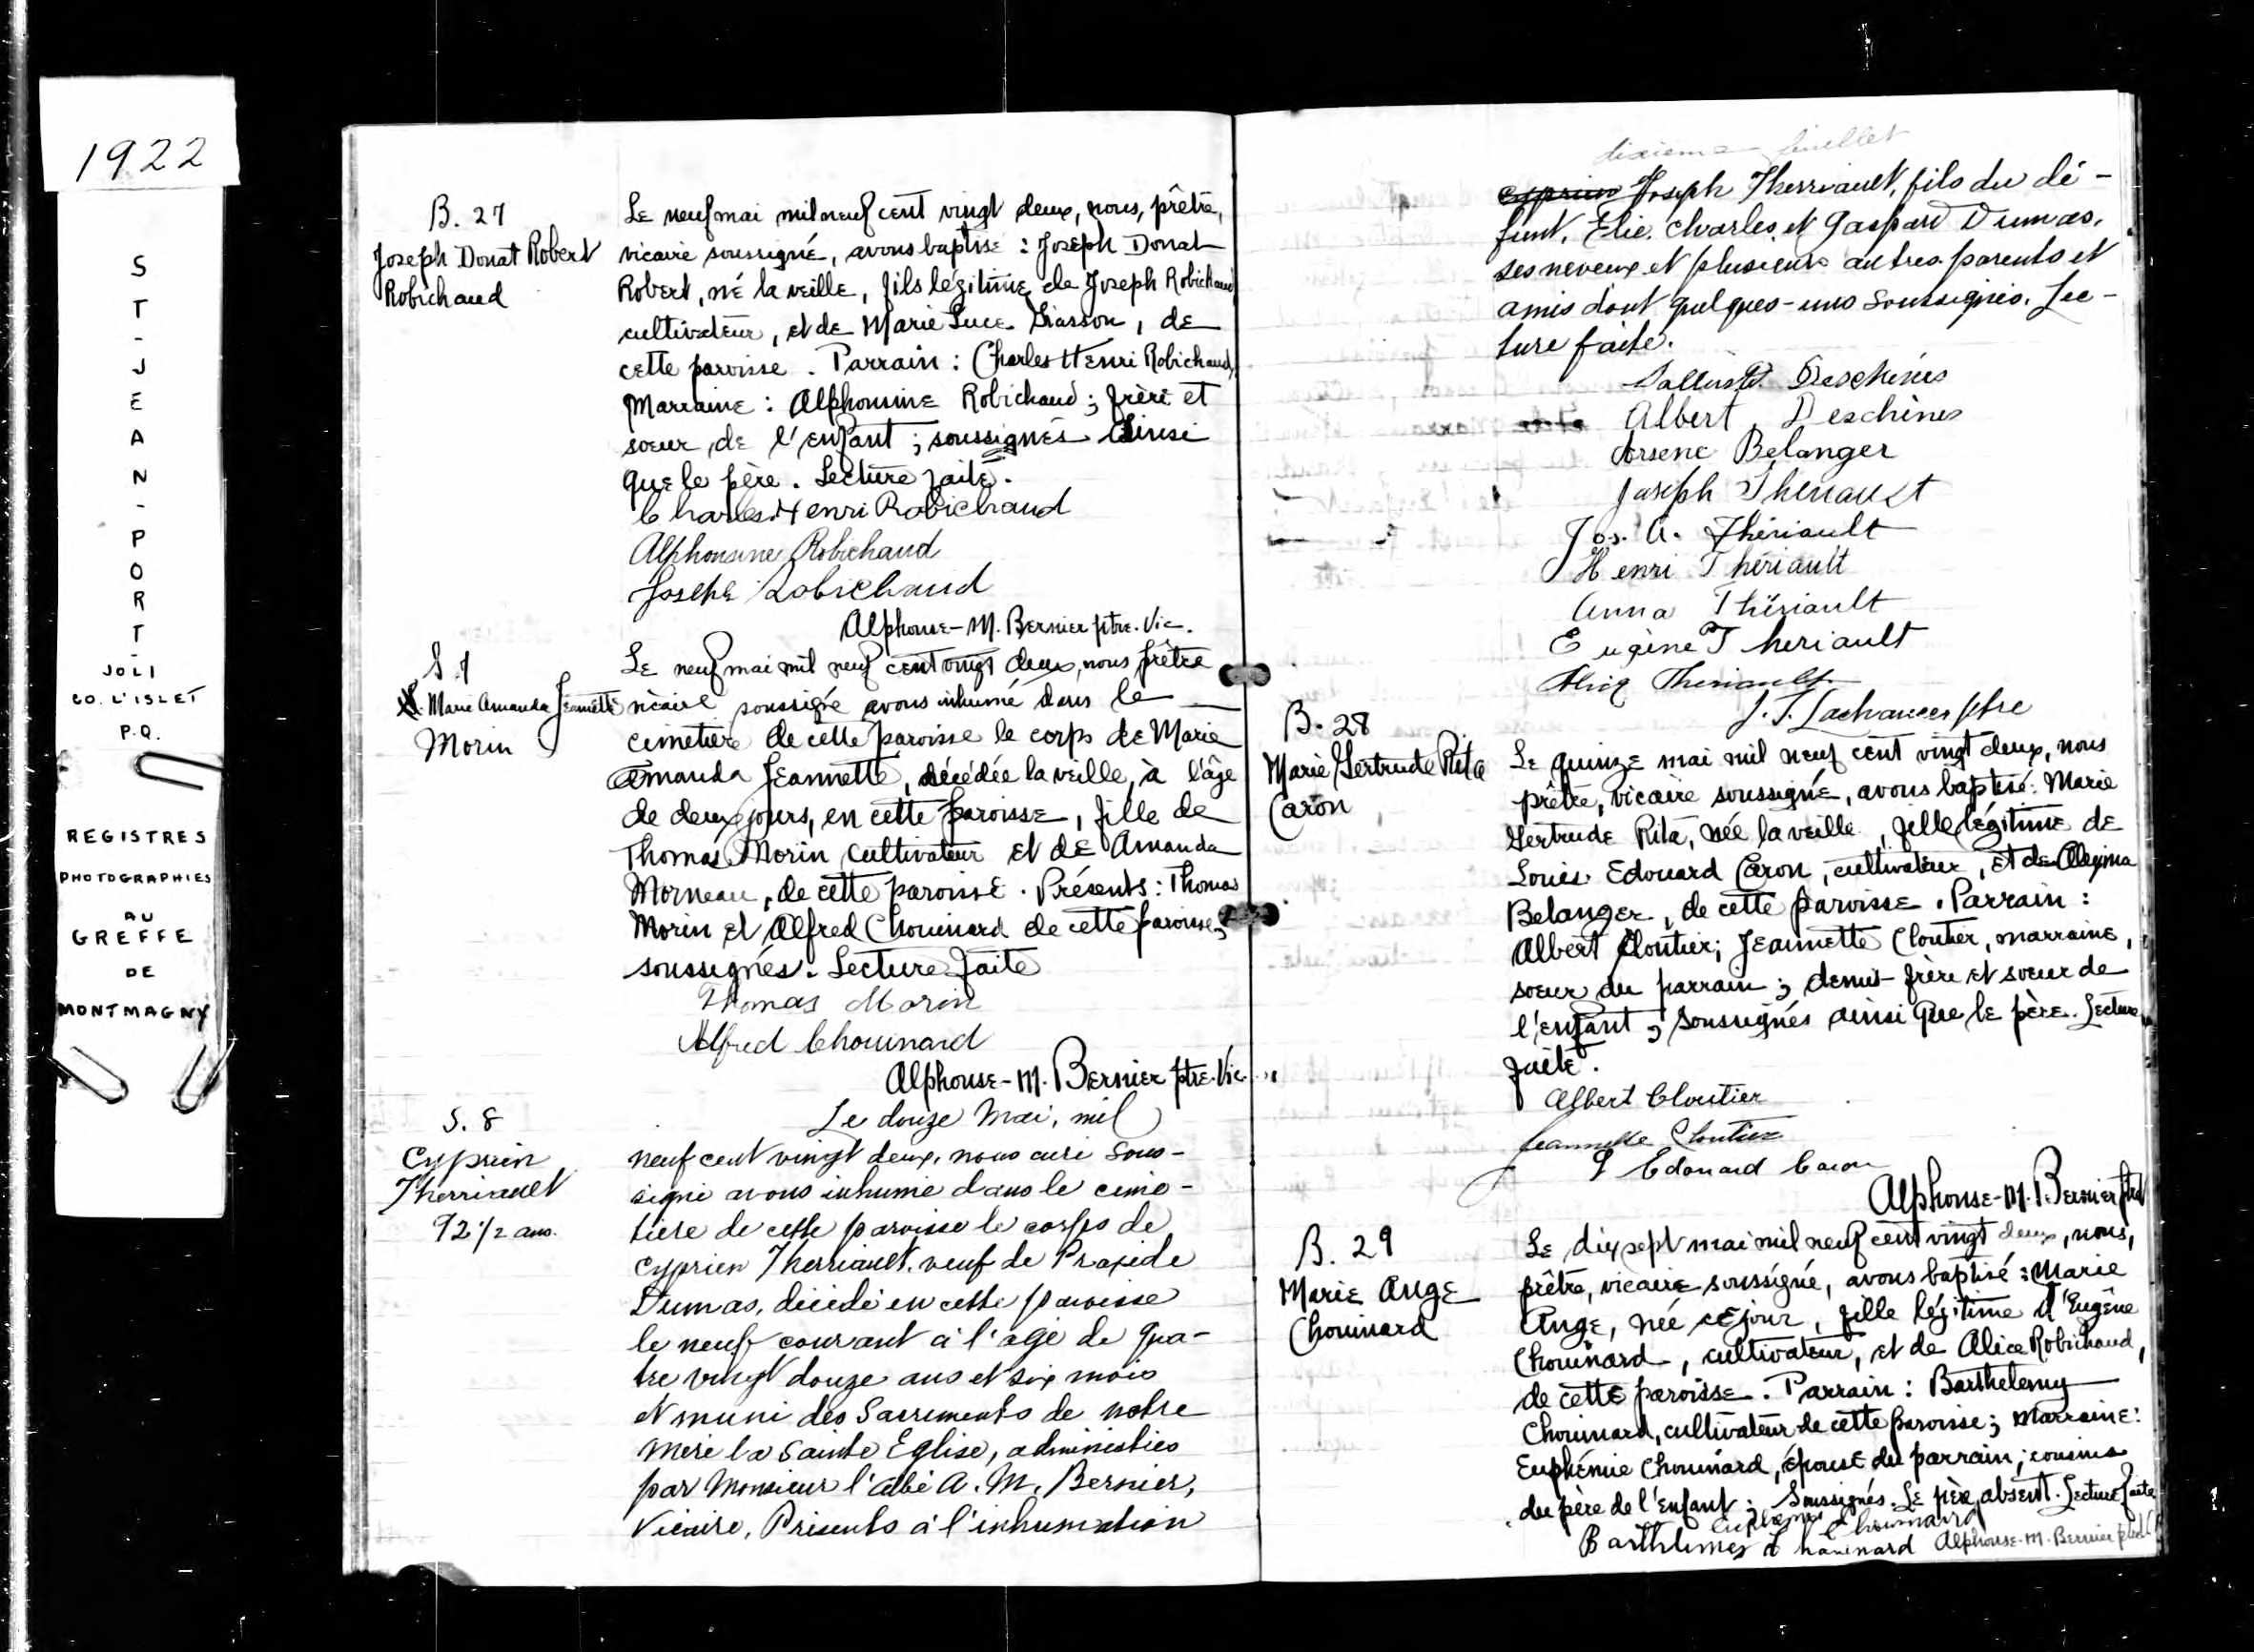 1922
ST-JEAN-PORT-
JOLI
CO. L'ISLET
P.Q.
REGISTRES
PHOTOGRAPHIES
AU
GREFFE
DE
MONTMAGNY
B. 27
Joseph Donat Robert
Robichaud
Le neuf mai mil neuf cent vingt deux, nous, prêtre,
vicaire soussigné, avons baptisé : Joseph Donat
Robert, né la veille, fils légitime de Joseph Robichaud
cultivateur, et de Marie Luce Giasson, de
cette paroisse. Parrain : Charles Henri Robichaud,
Marraine : Alphonsine Robichaud ; frère et
soeur de l'enfant ; soussignés ainsi
que le père. Lecture faite.
Charles Henri Robichaud
Alphonsine Robichaud
Joseph Robichaud
Alphonse-M. Bernier ptre. Vic.
S. 7
Marie Amanda Jeannette
Morin
Le neuf mai mil neuf cent vingt deux, nous prêtre
vicaire soussigné avons inhumé dans le
cimetière de cette paroisse le corps de Marie
Amanda Jeannette, décédée la veille, à l'âge
de deux jours, en cette paroisse, fille de
Thomas Morin cultivateur et de Amanda
Morneau, de cette paroisse. Présents : Thomas
Morin et Alfred Chouinard de cette paroisse,
soussignés. Lecture faite
Thomas Morin
Alfred Chouinard
Alphonse-M. Bernier ptre. Vic.
S. 8
Cyprien
Therriault
92 1/2 ans.
Le douze Mai, mil
neuf cent vingt deux, nous curé sous-
signé avons inhumé dans le cime-
tière de cette paroisse le corps de
Cyprien Therriault, veuf de Praxède
Dumas, décédé en cette paroisse
le neuf courant à l'age de qua-
tre vingt douze ans et six mois
et muni des Sacrements de notre
Mère la Sainte Eglise, administrés
par Monsieur l'abbé A. M. Bernier,
Vicaire. Présents à l'inhumation
dixième feuillet
cyprien Joseph Therriault, fils du dé-
funt, Elie, Charles, et Gaspard Dumas,
ses neveux et plusieurs autres parents et
amis dont quelques-uns soussignés. Lec-
ture faite.
Salluste Deschènes
Albert Deschènes
Arsene Belanger
Joseph Theriault
Jos. A. Thériault
Henri Thériault
Anna Thériault
Eugène Theriault
Theriault
J. T. Lachance ptre
B. 28
Marie Gertrude Rita
Caron
Le quinze mai mil neuf cent vingt deux, nous
prêtre, vicaire soussigné, avons baptisé : Marie
Gertrude Rita, née la veille, fille légitime de
Louis Edouard Caron, cultivateur, et de Alexina
Belanger, de cette paroisse. Parrain :
Albert Cloutier ; Jeannette Cloutier, marraine,
soeur du parrain ; demis-frère et soeur de
l'enfant ; soussignés ainsi que le père. Lecture
faite.
Albert Cloutier
Jeannette Cloutier
L Edouard Caron
Alphonse-M. Bernier ptre
B. 29
Marie Ange
Chouinard
Le dix sept mai mil neuf cent vingt deux, nous,
prêtre, vicaire soussigné, avons baptisé : Marie
Ange, née ce jour, fille légitime d'Eugène
Chouinard, cultivateur, et de Alice Robichaud,
de cette paroisse. Parrain : Barthelemy
Chouinard, cultivateur de cette paroisse ; Marraine :
Euphémie Chouinard, épouse du parrain ; cousins
du père de l'enfant ; soussignés. Le père, absent. Lecture faite
Euphemie Chouinard
Barthlemey Chouinard Alphonse-M. Bernier ptre